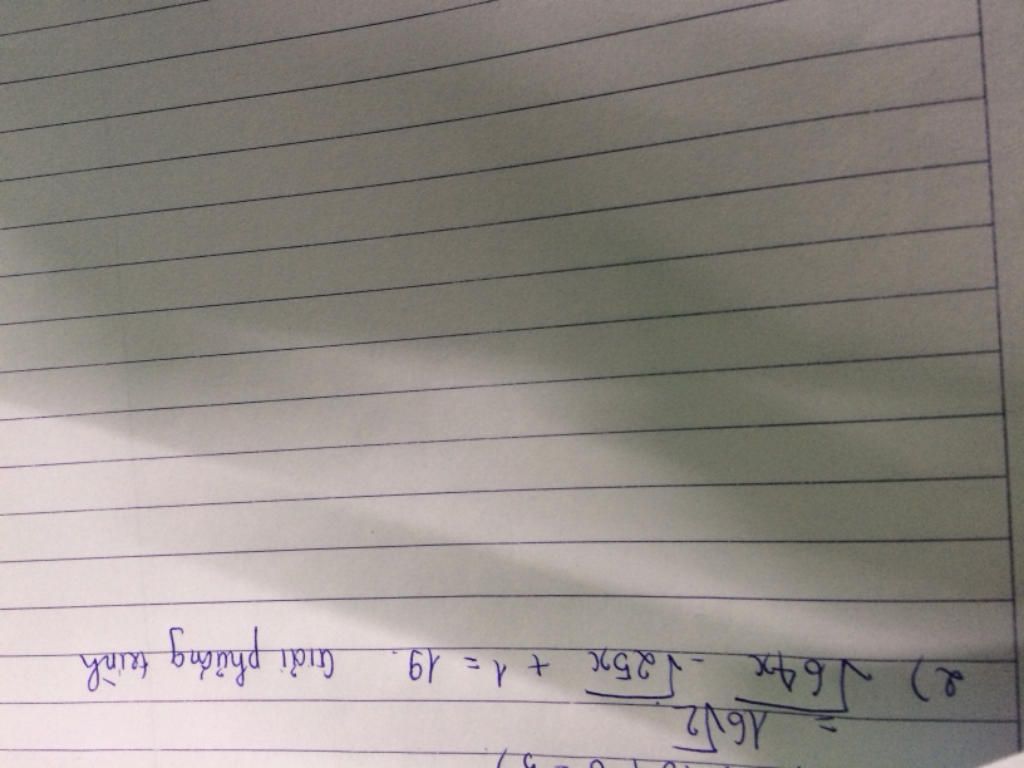 = 16√2
2) √64x - √25x + 1 = 19. Giải phương trình